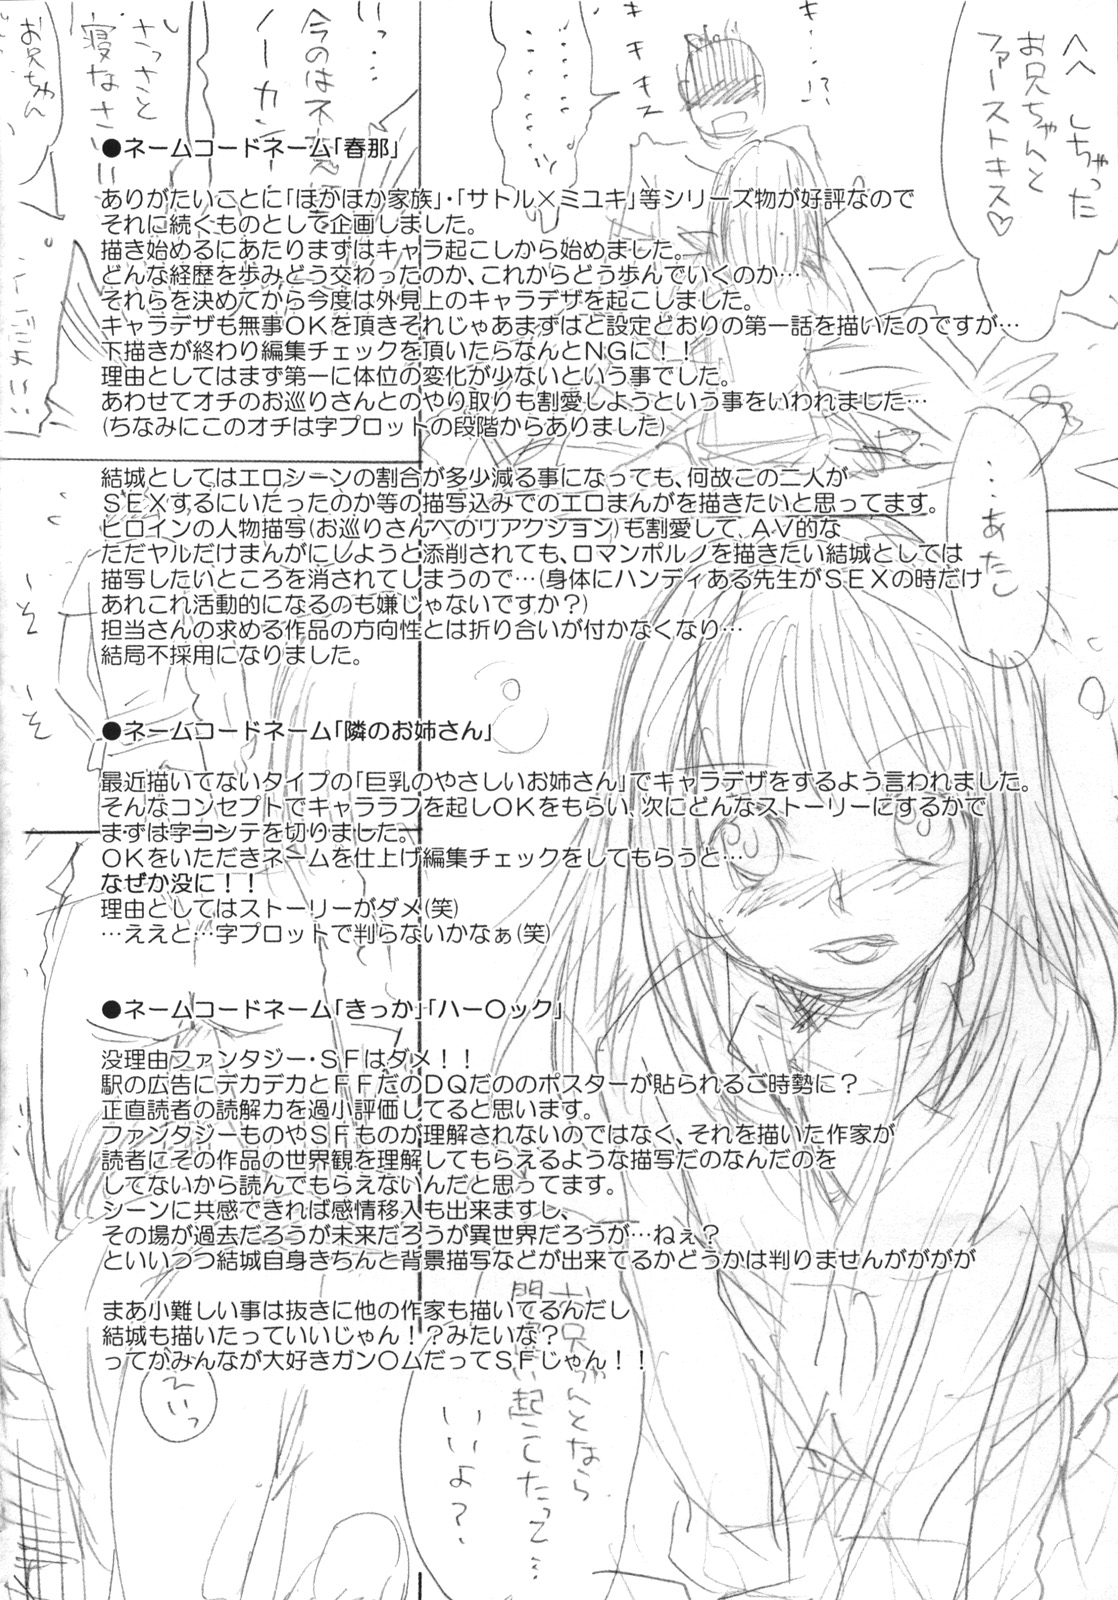 ●ネームコードネーム「春那」
ありがたいことに「ほかほか家族」・「サトル×ミユキ」等シリーズ物が好評なので
それに続くものとして企画しました。
描き始めるにあたりまずはキャラ起こしから始めました。
どんな経歴を歩みどう交わったのか、これからどう歩んでいくのか…
それらを決めてから今度は外見上のキャラデザを起こしました。
キャラデザも無事OKを頂きそれじゃあまずはど設定どおりの第一話を描いたのですが…
下描きが終わり編集チェックを頂いたらなんとNGに！！
理由としてはまず第一に体位の変化が少ないという事でした。
あわせてオチのお巡りさんとのやり取りも割愛しようという事をいわれました…
(ちなみにこのオチは字プロットの段階からありました)
結城としてはエロシーンの割合が多少減る事になっても、何故この二人が
SEXするにいたったのか等の描写込みでのエロまんがを描きたいと思ってます。
ヒロインの人物描写(お巡りさんへのリアクション)も割愛して、AV的な
ただヤルだけまんがにしようと添削されても、ロマンポルノを描きたい結城としては
描写したいところを消されてしまうので…(身体にハンディある先生がSEXの時だけ
あれこれ活動的になるのも嫌じゃないですか？)
担当さんの求める作品の方向性とは折り合いが付かなくなり…
結局不採用になりました。
●ネームコードネーム「隣のお姉さん」
最近描いてないタイプの「巨乳のやさしいお姉さん」でキャラデザをするよう言われました。
そんなコンセプトでキャララフを起しOKをもらい、次にどんなストーリーにするかで
まずは字コンテを切りました。
OKをいただきネームを仕上げ編集チェックをしてもらうと…
なぜか没に！！
理由としてはストーリーがダメ(笑)
…ええと…字プロットで判らないかなぁ(笑)
●ネームコードネーム「きっか」「ハー〇ック」
没理由ファンタジー・SFはダメ！！
駅の広告にデカデカとFFだのDQだののポスターが貼られるご時勢に？
正直読者の読解力を過小評価してると思います。
ファンタジーものやSFものが理解されないのではなく、それを描いた作家が
読者にその作品の世界観を理解してもらえるような描写だのなんだのを
してないから読んでもらえないんだと思ってます。
シーンに共感できれば感情移入も出来ますし、
その場が過去だろうが未来だろうが異世界だろうが…ねぇ？
といいつつ結城自身きちんと背景描写などが出来てるかどうかは判りませんがががが
まあ小難しい事は抜きに他の作家も描いてるんだし
結城も描いたっていいじゃん！？みたいな？
ってかみんなが大好きガン〇ムだってSFじゃん！！
へへ しちゃった
お兄ちゃんと
ファーストキス♡
キキキス
いっ…
今のは
ノーカン
さっさと
寝なさい
お兄ちゃん
…あたし
～そ
～そ
起こしたって…
いいよ？